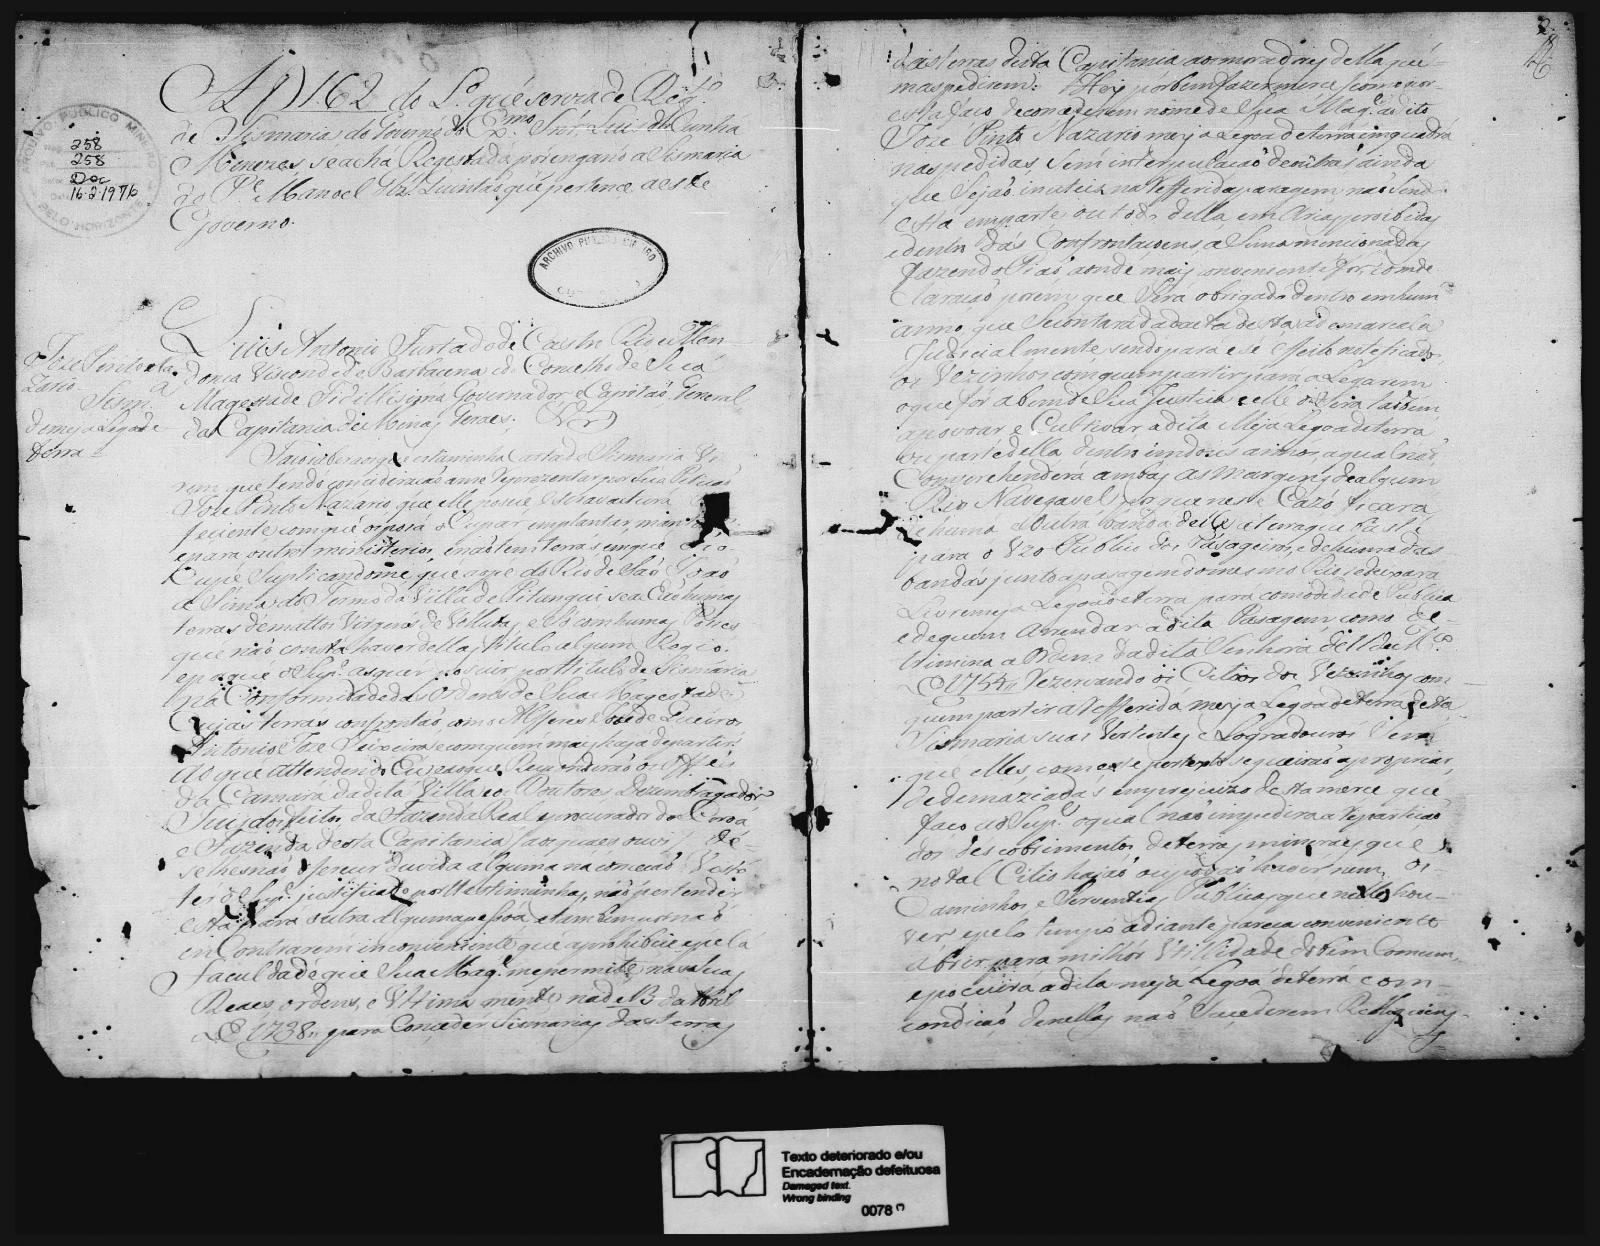 Af 162 do L.º que serve de Reg.to
de Sismarias do Governo do Ex.mo Snr. Luis da Cunha
Menezes, se acha Registada por engano a Sismaria
do P.e Manoel Quintas, que pertence a este
Governo.
ARQUIVO PUBLICO MINEIRO
258
258
Doc
16-2-1976
BELO HORIZONTE
ARCHIVO PUBLICO MINEIRO
Joze Pinto Na
zario
Sesm.a
de meya Legoa de
terra
Luis Antonio Furtado de Castro Rio e Men
donca Visconde de Barbacena do Concelho de Sua
Magestade Fidillisima Governador e Capitaõ General
da Capitania de Minas Geraes.
Faço saber aos que esta minha Carta de Sismaria Vi
rem que tendo concideraçaõ a me Reprezentar por Sua Petiçaõ
Joze Pinto Nazario, que elle posue Escravatura
feciente com que opoça Ocupar em plantar, min
e para outros ministerios, e naõ tem terras em que
cupe Suplicandome que ao pe do Rio de Saõ Joaõ
a Sima do Termo da Villa de Pitangui se achaõ humas
terras de mattos Virgens de Voluta, e
que naõ consta haver della, titulo algum Regio.
e porque o Sup.e as quer posuir por titulo de Sismaria
na Comformidade das Ordens de Sua Magestade
Cujas terras confrontaõ com o Alferes Joze de Queiros
Antonio Joze Teixeira e com quem mais haja de partir.
Ao que attendendo Eu e ao que Responderaõ os Offes
da Camara da dita Villa e os Doutores Dezambragador
Juis dos feitos da Fazenda Real e procurador da Coroa
e Fazenda desta Capitania (aos quaes ouvi) de
se lhes naõ oferecer duvida alguma na conceçaõ Visto
ter o Sup.e justificado por testiminhas, naõ pertender
esta para outra alguma pesoa, etam bem por naõ
en Contrarem inconveniente que aprohibice e pela
faculdade que Sua Mag.e me permite, nas Suas
Reaes ordens, e Ultima mente na de 13 de Abril
de 1738,, para Conceder Sismarias das terras
2
das terras desta Capitania aos moradores della que
mas pedirem: Hey por bem fazer merce (como por
esta faço) de conceder em nome de Sua Mag.e ao dito
Joze Pinto Nazario meya Legoa de terra em quadra
nas pedidas, Sem interpulaçaõ de outras, ainda
que Sejaõ inuteis na Refferida paragem, naõ Send
esta em parte ou todo della em Arias proibidas
e dentro das Confrontaçoens a Sima mencionadas
fazendo Piaõ aonde mais convenente for, com de
claraçaõ porem, que Sera obrigado dentro em hum
anno que Se contara da data desta a demarcala
Judicial mente, sendo para esse effeito noteficado,
os Vezinhos com quem partir para alegarem
o que for a bem de Sua Justica e elle o Sera taõbem
apovoar e Cultivar, adita Meya Legoa de terra
ou parte della dentro em dois annos, a qual naõ
Comprehenderá ambas as Margens de algum
Rio Navegavel, porque neste Cazo ficara
de huma e outra banda delle a terra que baste
para o Uzo Publico dos Pasageiros, e de huma das
bandas junto a pasagem do mesmo Rio se deixará
Livre meya Legoa de terra para comodidade Publica
e de quem arrendar a dita Pasagem, como de
trimina a Ordem da dita Senhora de 11 de M.ço
de 1754,, Rezervando os Citios dos Vezinhos com
quem partir a Refferida meya Legoa de terra desta
Sismaria suas Vertentes e Logradouros Sem
que elles, com este pertexto se queiraõ apropriar
de demaziadas em prejuizo desta merce que
faco ao Sup.e o qual naõ impedira a Repartiçaõ
dos Descobrimentos de terras mineraes que
no tal Citio hajaõ ou posaõ haver nem os
Caminhos e Serventias Publicas que nelle hou
ver e pelo tempo adiante pareca conveniente
abrir, para milhor Utillidade do bem Comum,
e pocuira a dita meya Legoa de terra com
condicaõ de nellas naõ Sucederem Religioens
Texto deteriorado e/ou
Encadernação defeituosa
Damaged text.
Wrong binding
0078